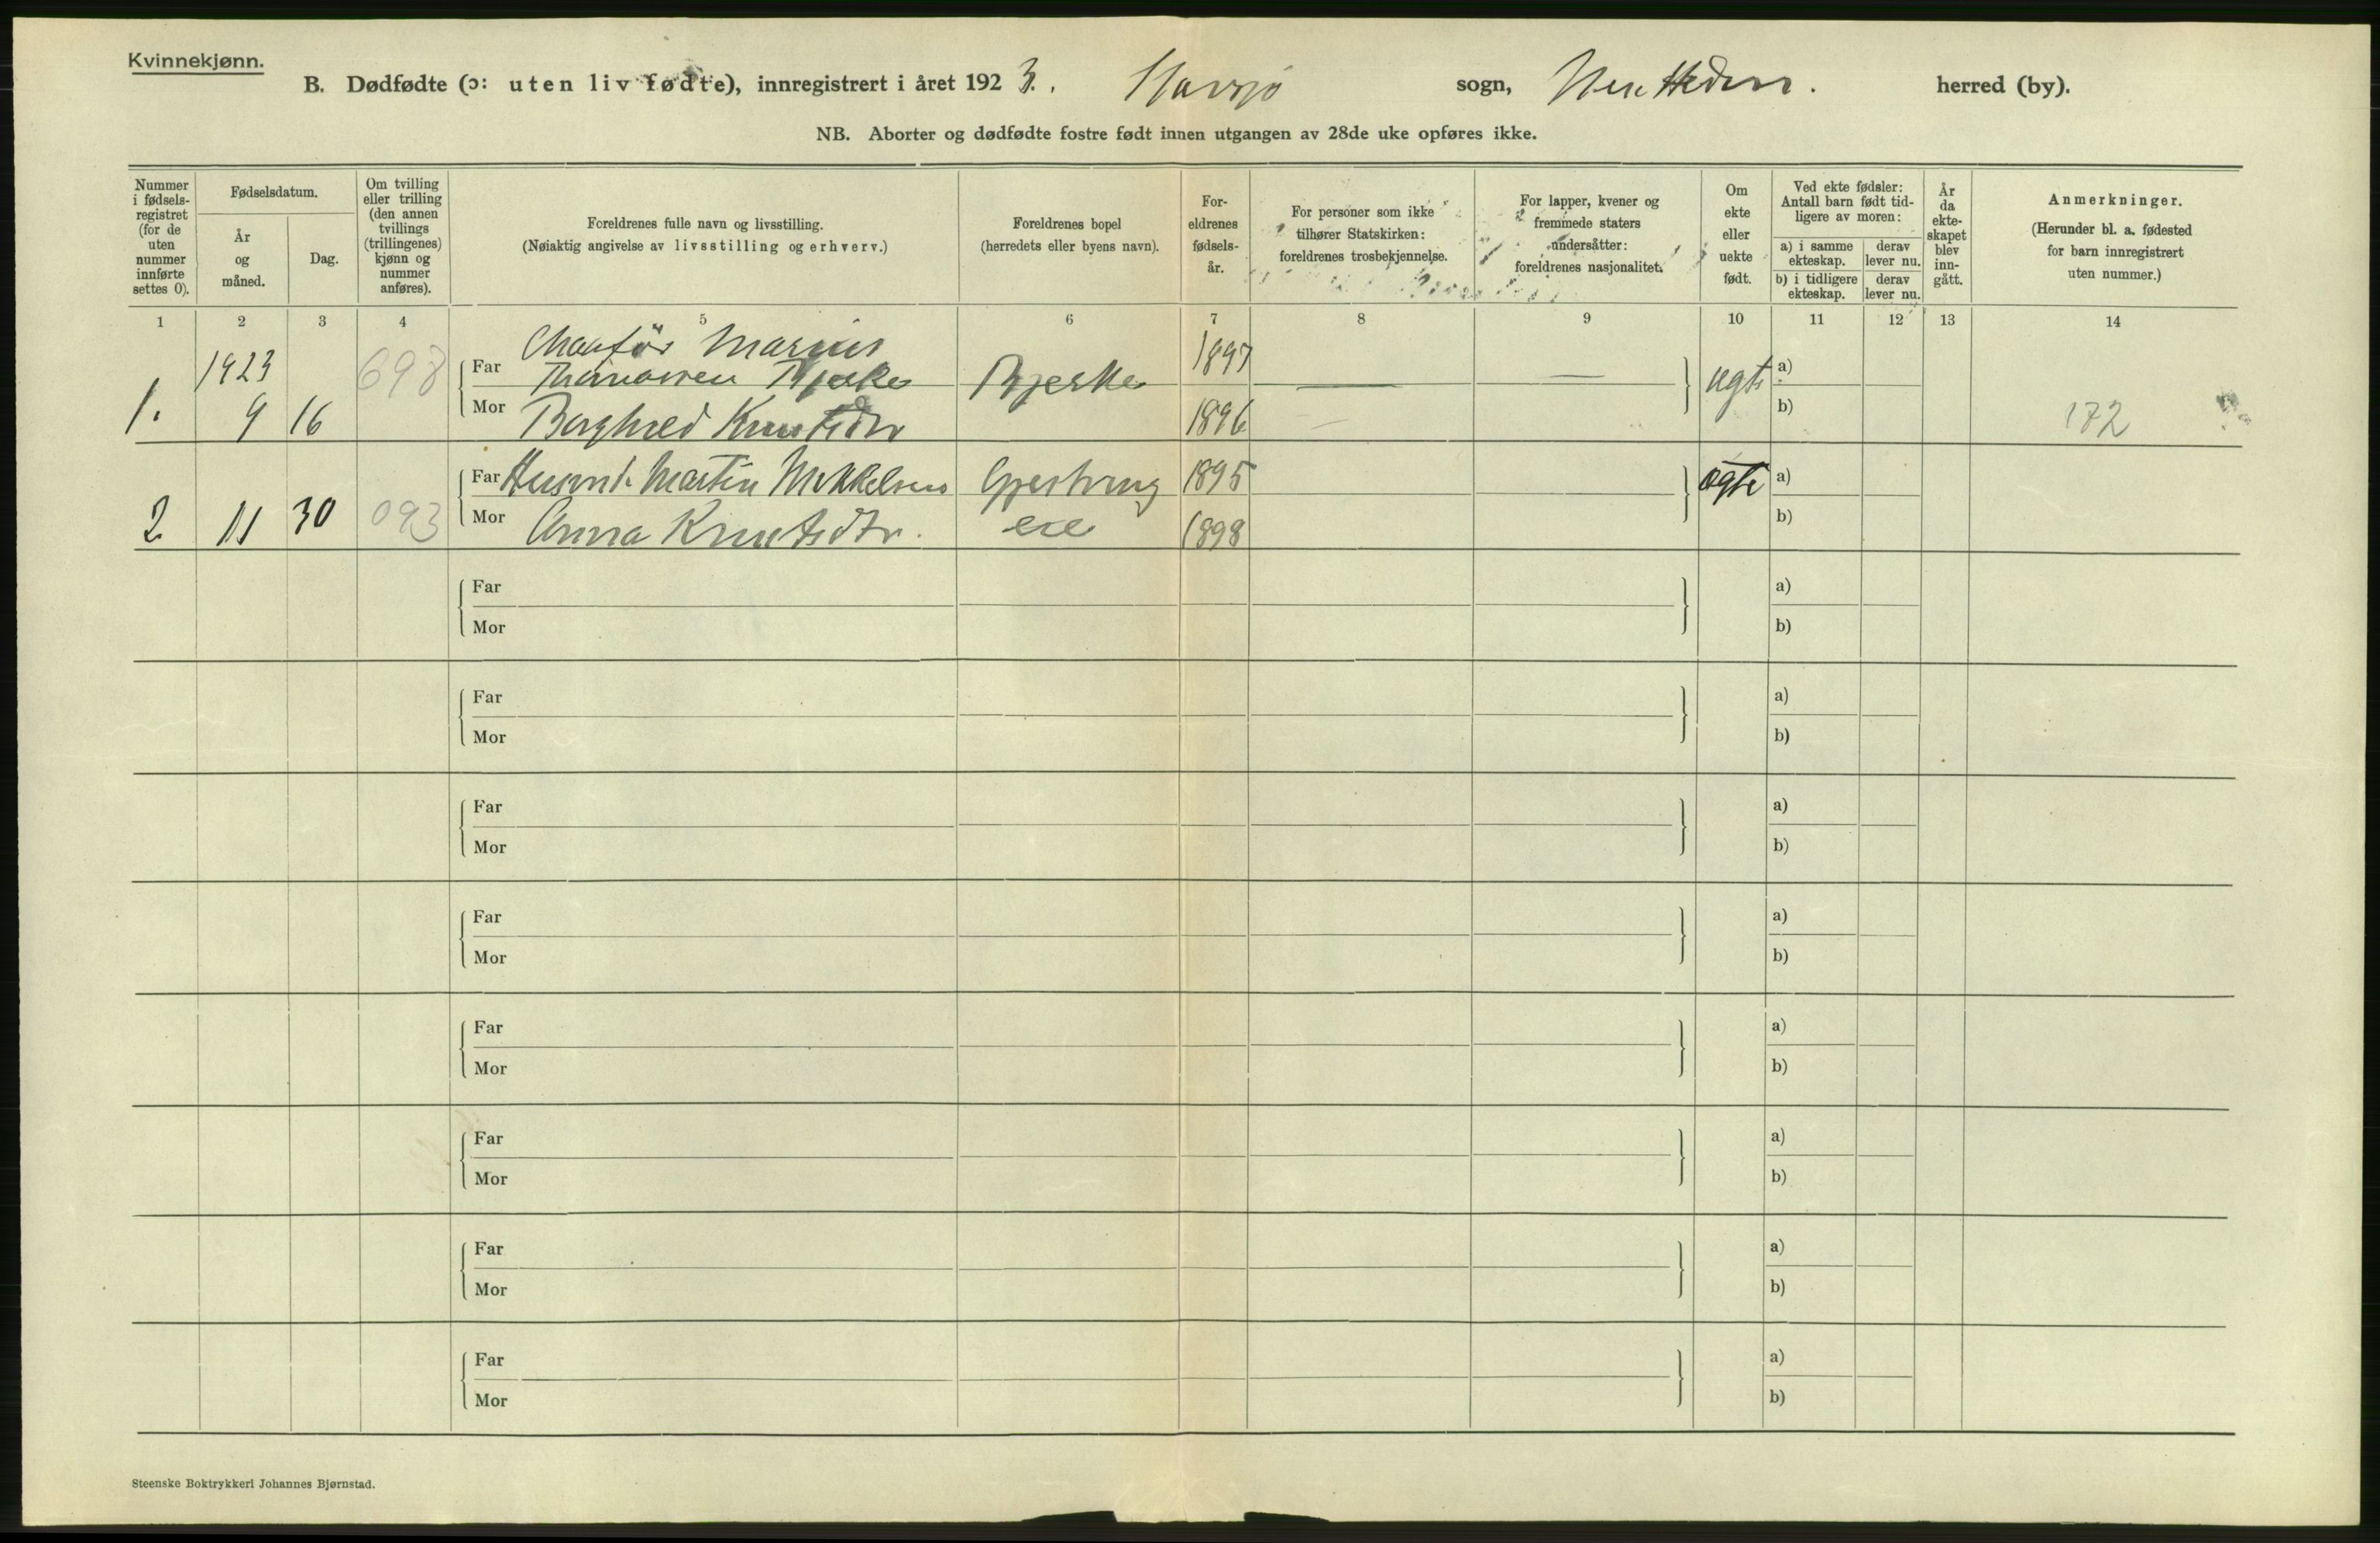 Kvinnekjønn.
B. Dødfødte (ɔ: uten liv fødte), innregistrert i året 1923. Stavsjø sogn, Nes Hedm. herred (by).
NB. Aborter og dødfødte fostre født innen utgangen av 28de uke opføres ikke.
Nummer i fødsels-registret (for de uten nummer innførte settes 0).
Fødselsdatum.
År og måned.
Dag.
Om tvilling eller trilling (den annen tvillings (trillingenes) kjønn og nummer anføres).
Foreldrenes fulle navn og livsstilling.
(Nøiaktig angivelse av livsstilling og erhverv.)
Foreldrenes bopel
(herredets eller byens navn).
For-eldrenes fødsels-år.
For personer som ikke tilhører Statskirken: foreldrenes trosbekjennelse.
For lapper, kvener og fremmede staters undersåtter: foreldrenes nasjonalitet.
Om ekte eller uekte født.
Ved ekte fødsler: Antall barn født tid-ligere av moren:
a) i samme ekteskap.
derav lever nu.
b) i tidligere ekteskap.
derav lever nu.
År da ekte-skapet blev inn-gått.
Anmerkninger.
(Herunder bl. a. fødested for barn innregistrert uten nummer.)
1 2 3 4 5 6 7 8 9 10 11 12 13 14
Chaufør Marius 1897
1923 698 Far Bjerke Bjerke a)
1. 9 16 Mor Borghild Knutsdtr 1896 b) 172
Far Husmd. Martin Mikkelsen 1895 ægte a)
2 11 30 093 Mor Anna Knutsdtr. 1898 b)
Far a)
Mor b)
Far a)
Mor b)
Far a)
Mor b)
Far a)
Mor b)
Far a)
Mor b)
Far a)
Mor b)
Far a)
Mor b)
Far a)
Mor b)
Steenske Boktrykkeri Johannes Bjørnstad.